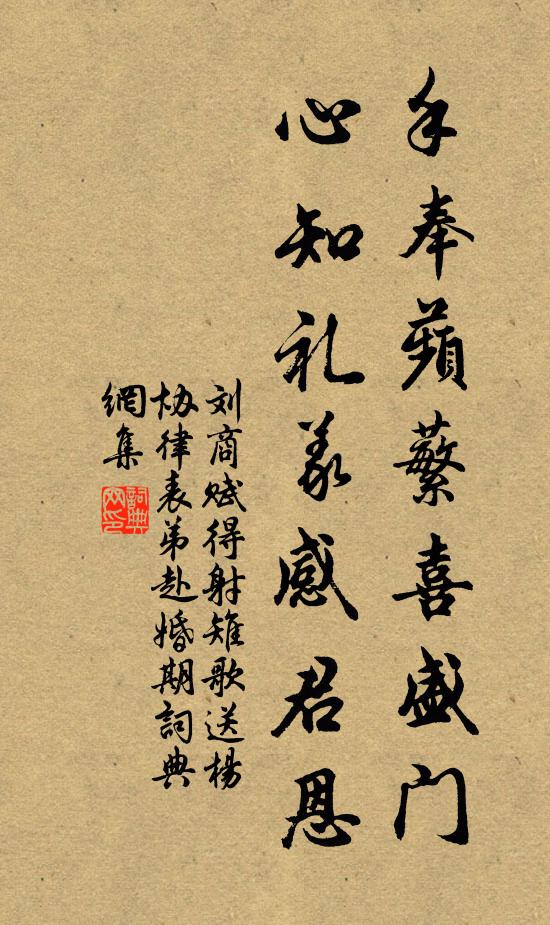 手奉蘋蘩喜盛门
心知礼義感君恩
刘商赋得射雉歌送楊
协律表弟赴婚期詞典
網集
詞典
网印